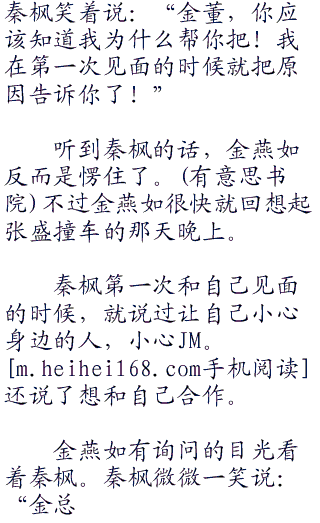 秦枫笑着说：“金董，你应
该知道我为什么帮你把！我
在第一次见面的时候就把原
因告诉你了！”
听到秦枫的话，金燕如
反而是愣住了。(有意思书
院)不过金燕如很快就回想起
张盛撞车的那天晚上。
秦枫第一次和自己见面
的时候，就说过让自己小心
身边的人，小心JM。
[m.heihei168.com手机阅读]
还说了想和自己合作。
金燕如有询问的目光看
着秦枫。秦枫微微一笑说：
“金总